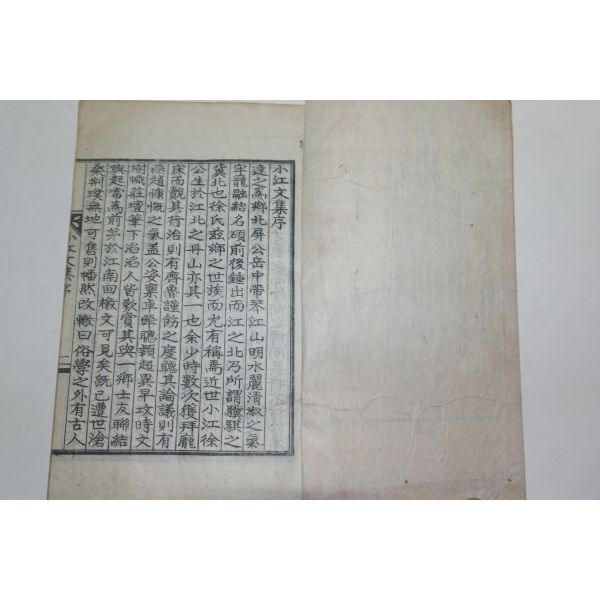 小江文集序
達之爲鄉北屏公岳中帶琴江山明水麗淸淑之氣
牢籠融結名碩前後鍾出而江之北乃所謂驥騏之
冀北也徐氏玆鄉之世族而尤有稱焉近世小江徐
公生於江北之丹山亦其一也余少時數次獲拜龐
床而觀其行治則有齊魯謹飭之度聽其論議則有
燕趙慷慨之氣盖公姿稟卓犖聰穎超異早攻時文
樹幟莊壇筆下滔滔人皆歎賞其與一鄉士友聯結
興起常爲前茅於江南回檄文可見矣旣已遭世滄
桑荆璞無地可售則幡然改轍曰俗學之外有古人
小江文集序
一